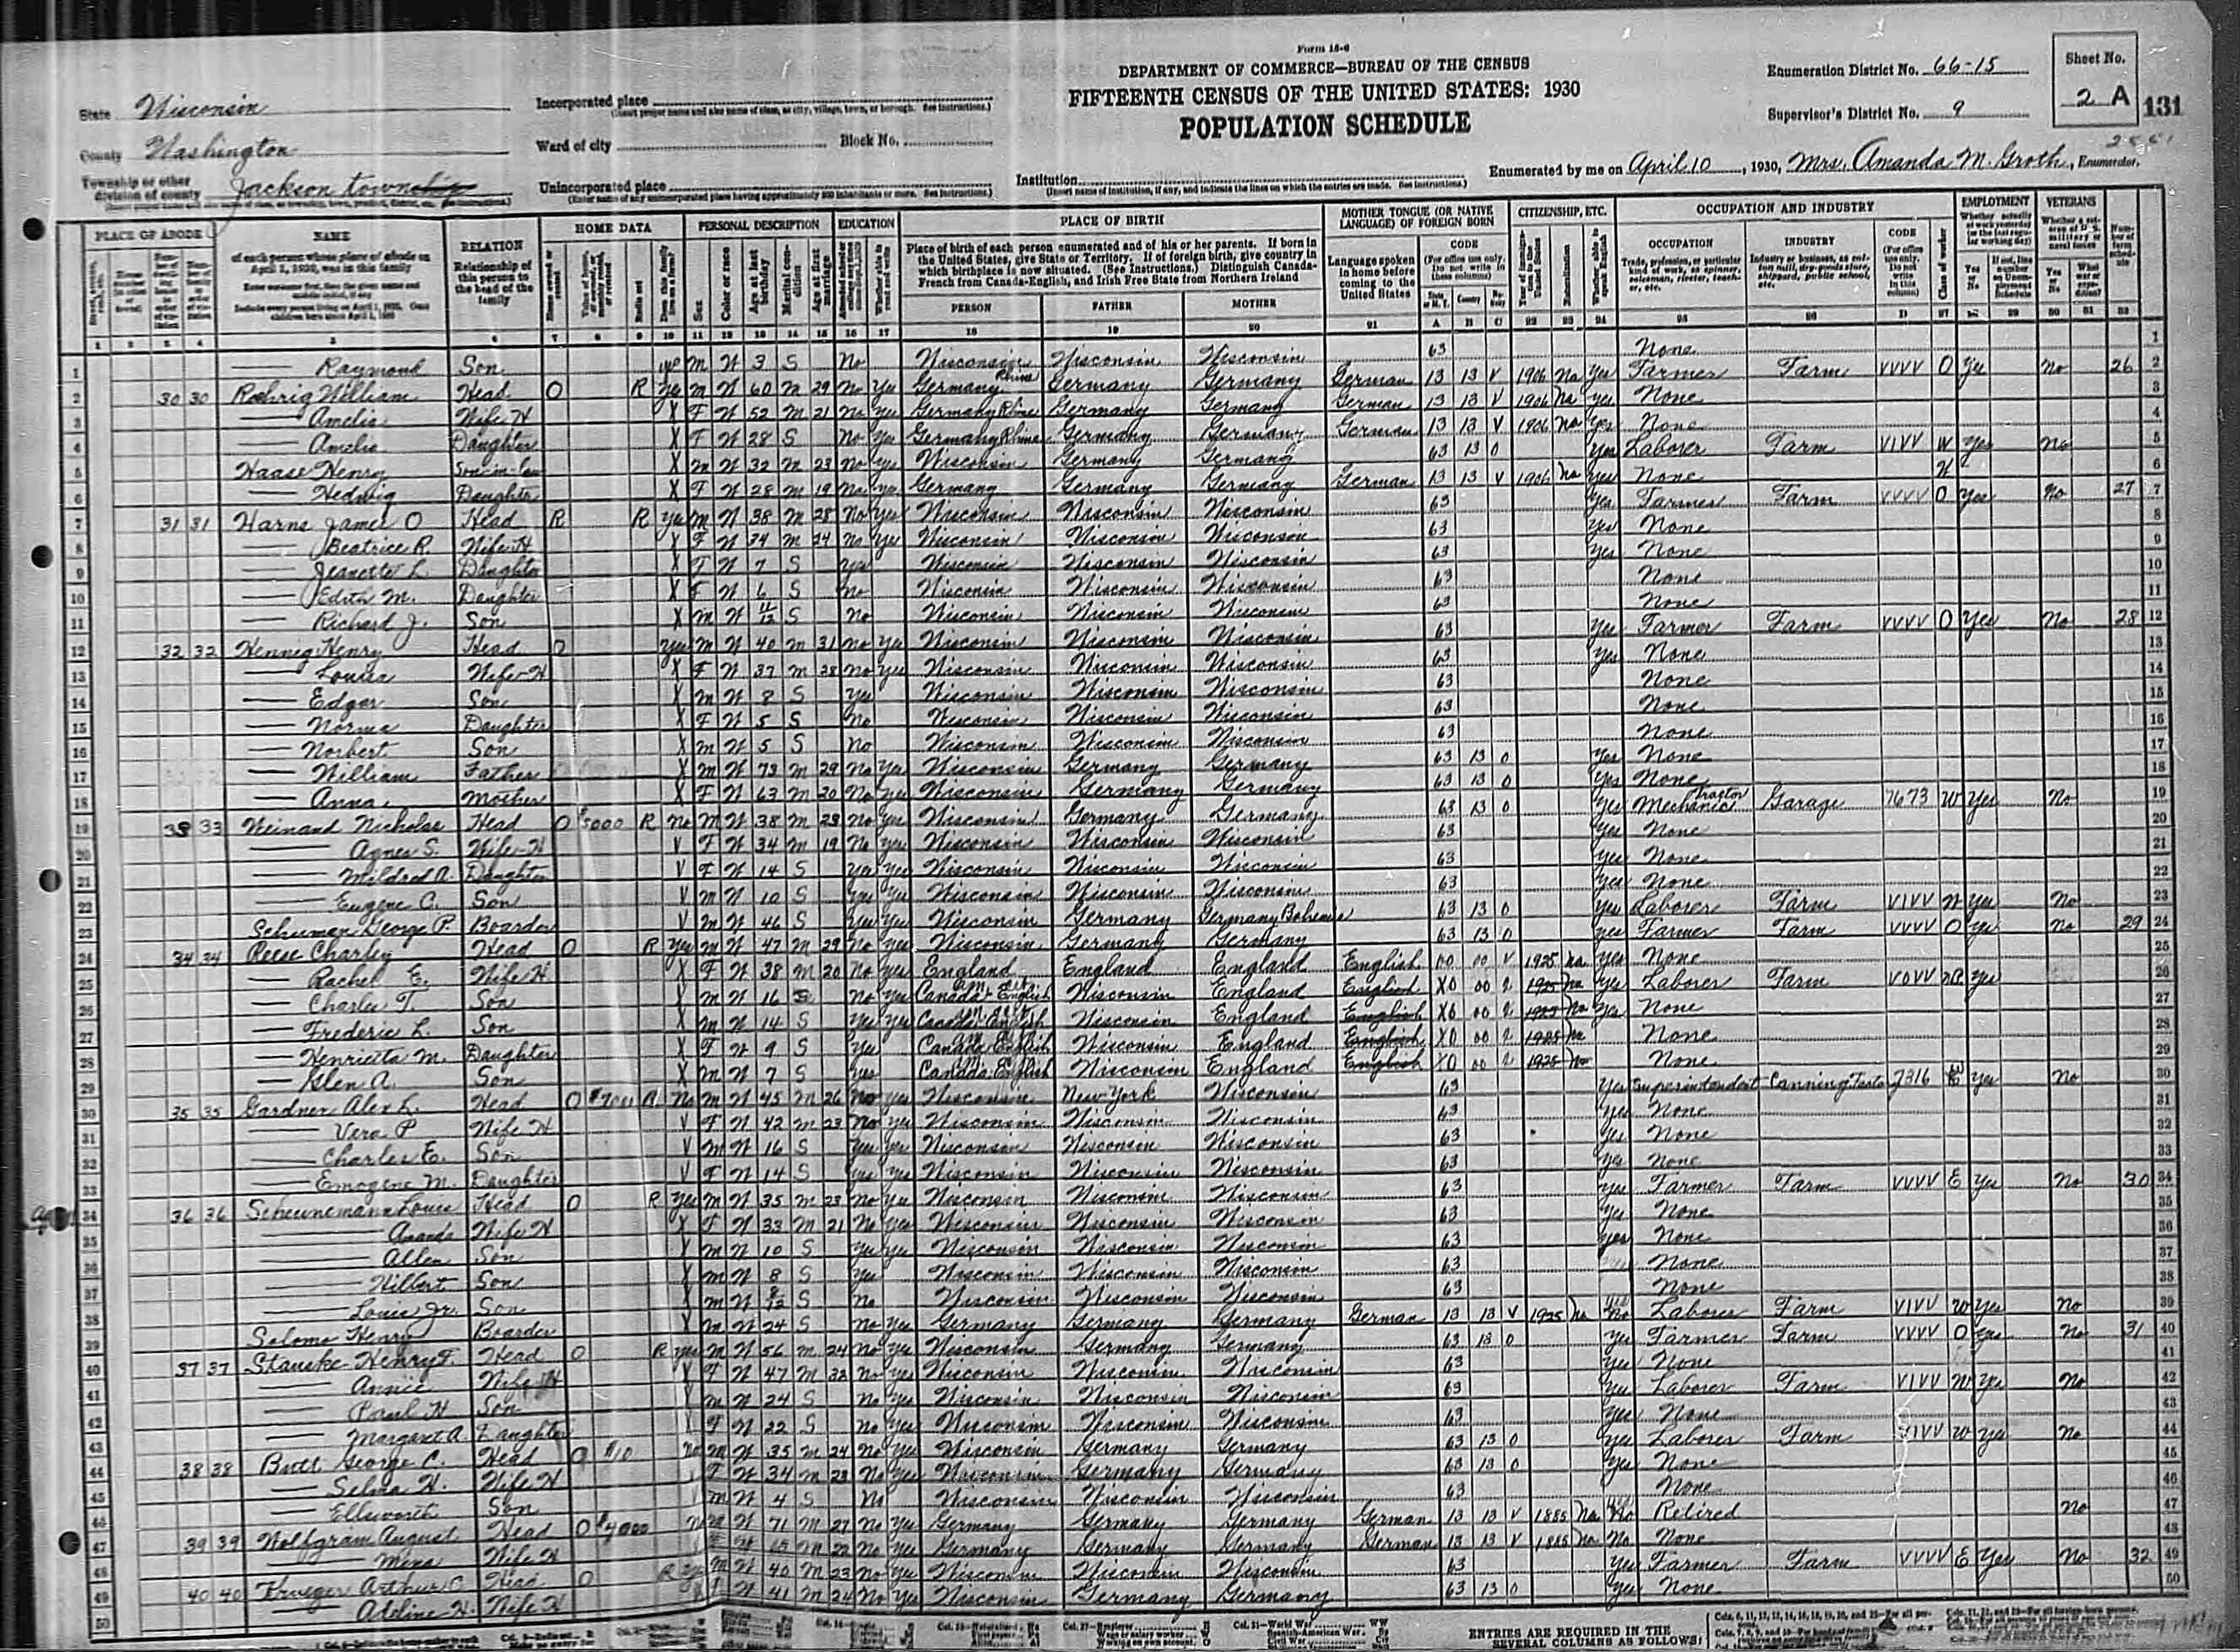 Form 15-6
DEPARTMENT OF COMMERCE—BUREAU OF THE CENSUS
FIFTEENTH CENSUS OF THE UNITED STATES: 1930
POPULATION SCHEDULE
State Wisconsin
County Washington
Township or other division of county Jackson township
Incorporated place
(Insert proper name and also name of class, as city, village, town, or borough. See instructions.)
Ward of city Block No.
Unincorporated place
(Enter name of any unincorporated place having approximately 500 inhabitants or more. See instructions.)
Institution
(Insert name of institution, if any, and indicate the lines on which the entries are made. See instructions.)
Enumeration District No. 66-15
Supervisor's District No. 9
Sheet No.
2 A
131
Enumerated by me on April 10, 1930, Mrs. Amanda M. Groth, Enumerator.
PLACE OF ABODE NAME RELATION HOME DATA PERSONAL DESCRIPTION EDUCATION PLACE OF BIRTH MOTHER TONGUE (OR NATIVE LANGUAGE) OF FOREIGN BORN CITIZENSHIP, ETC. OCCUPATION AND INDUSTRY EMPLOYMENT VETERANS
of each person whose place of abode on April 1, 1930, was in this family
Relationship of this person to the head of the family
Place of birth of each person enumerated and of his or her parents. If born in the United States, give State or Territory. If of foreign birth, give country in which birthplace is now situated. (See Instructions.) Distinguish Canada-French from Canada-English, and Irish Free State from Northern Ireland
PERSON FATHER MOTHER
Language spoken in home before coming to the United States
CODE
OCCUPATION INDUSTRY CODE
1 Raymond Son yes M W 3 S No Wisconsin Wisconsin Wisconsin 63 None 1
2 30 30 Roehrig William Head O R Yes M W 60 M 29 No Yes Germany Rhine Germany Germany German 13 13 V 1906 Na Yes Farmer Farm VVVV O Yes No 26 2
3 Amelia Wife H X F W 52 M 21 No Yes Germany Rhine Germany Germany German 13 13 V 1906 Na Yes None 3
4 Amelia Daughter X F W 28 S No Yes Germany Rhine Germany Germany German 13 13 V 1906 Na Yes None 4
5 Haase Henry Son-in-law X M W 32 M 23 No Yes Wisconsin Germany Germany 63 13 0 Yes Laborer Farm VIVV W Yes No 5
6 Hedwig Daughter X F W 28 M 19 No Yes Germany Germany Germany German 13 13 V 1906 Na Yes None 6
7 31 31 Harns James O Head R R Yes M W 38 M 28 No Yes Wisconsin Wisconsin Wisconsin 63 Yes Farmer Farm VVVV O Yes No 27 7
8 Beatrice R. Wife H X F W 34 M 24 No Yes Wisconsin Wisconsin Wisconsin 63 Yes None 8
9 Jeanette L. Daughter X F W 7 S Yes Wisconsin Wisconsin Wisconsin 63 Yes None 9
10 Edith M. Daughter X F W 6 S No Wisconsin Wisconsin Wisconsin 63 None 10
11 Richard J. Son X M W 11/12 S No Wisconsin Wisconsin Wisconsin 63 None 11
12 32 32 Hennig Henry Head O Yes M W 40 M 31 No Yes Wisconsin Wisconsin Wisconsin 63 Yes Farmer Farm VVVV O Yes No 28 12
13 Louisa Wife H X F W 37 M 28 No Yes Wisconsin Wisconsin Wisconsin 63 Yes None 13
14 Edgar Son X M W 8 S Yes Wisconsin Wisconsin Wisconsin 63 None 14
15 Norma Daughter X F W 5 S No Wisconsin Wisconsin Wisconsin 63 None 15
16 Norbert Son X M W 5 S No Wisconsin Wisconsin Wisconsin 63 None 16
17 William Father X M W 73 M 29 No Yes Wisconsin Germany Germany 63 13 0 Yes None 17
18 Anna Mother X F W 63 M 20 No Yes Wisconsin Germany Germany 63 13 0 Yes None 18
19 33 33 Weinand Nicholas Head O $5000 R No M W 38 M 23 No Yes Wisconsin Germany Germany 63 13 0 Yes Mechanic tractor Garage 7673 W Yes No 19
20 Agnes S. Wife H V F W 34 M 19 No Yes Wisconsin Wisconsin Wisconsin 63 Yes None 20
21 Mildred A. Daughter V F W 14 S Yes Yes Wisconsin Wisconsin Wisconsin 63 Yes None 21
22 Eugene C. Son V M W 10 S Yes Yes Wisconsin Wisconsin Wisconsin 63 Yes None 22
23 Schuman George P. Boarder V M W 46 S Yes Yes Wisconsin Germany Germany Bohemia 63 13 0 Yes Laborer Farm VIVV W Yes No 23
24 34 34 Reese Charley Head O R Yes M W 47 M 29 No Yes Wisconsin Germany Germany 63 13 0 Yes Farmer Farm VVVV O Yes No 29 24
25 Rachel E. Wife H X F W 38 M 20 No Yes England England England English 00 00 V 1925 Na Yes None 25
26 Charles T. Son X M W 16 S No Yes Canada English Wisconsin England English X0 00 2 1925 Na Yes Laborer Farm VOVV NP Yes 26
27 Frederic L. Son X M W 14 S Yes Yes Canada English Wisconsin England English X0 00 2 1925 Na Yes None 27
28 Henrietta M. Daughter X F W 9 S Yes Canada English Wisconsin England English X0 00 2 1925 Na None 28
29 Glen A. Son X M W 7 S Yes Canada English Wisconsin England English X0 00 2 1925 Na None 29
30 35 35 Gardner Alex L. Head O R No M W 45 M 26 No Yes Wisconsin New York Wisconsin 63 Yes Superintendent Canning Facto 7316 Yes No 30
31 Vera P Wife H V F W 42 M 23 No Yes Wisconsin Wisconsin Wisconsin 63 Yes None 31
32 Charles E. Son V M W 16 S Yes Yes Wisconsin Wisconsin Wisconsin 63 Yes None 32
33 Emogene M. Daughter V F W 14 S Yes Yes Wisconsin Wisconsin Wisconsin 63 Yes None 33
34 36 36 Scheunemann Louis Head O R Yes M W 35 M 23 No Yes Wisconsin Wisconsin Wisconsin 63 Yes Farmer Farm VVVV E Yes No 30 34
35 Wife H X F W 33 M 21 No Yes Wisconsin Wisconsin Wisconsin 63 Yes None 35
36 Allen Son X M W 10 S Yes Yes Wisconsin Wisconsin Wisconsin 63 Yes None 36
37 Hilbert Son X M W 8 S Yes Wisconsin Wisconsin Wisconsin 63 None 37
38 Louis Jr. Son X M W 8/12 S No Wisconsin Wisconsin Wisconsin 63 None 38
39 Salomo Henry Boarder X M W 24 S No Yes Germany Germany Germany German 13 13 V 1925 Na No Laborer Farm VIVV W Yes No 39
40 37 37 Stauske Henry F. Head O R Yes M W 56 M 24 No Yes Wisconsin Germany Germany 63 13 0 Yes Farmer Farm VVVV O Yes No 31 40
41 Annie Wife H X F W 47 M No Yes Wisconsin Wisconsin Wisconsin 63 Yes None 41
42 Paul H Son M W 24 S No Yes Wisconsin Wisconsin Wisconsin 63 Yes Laborer Farm VIVV W Yes No 42
43 Margaret A. Daughter X F W 22 S No Yes Wisconsin Wisconsin Wisconsin 63 Yes None 43
44 38 38 Butt George C. Head O $10 No M W 35 M 24 No Yes Wisconsin Germany Germany 63 13 0 Yes Laborer Farm VIVV W Yes No 44
45 Selma H. Wife H F W 34 M 23 No Yes Wisconsin Germany Germany 63 13 0 Yes None 45
46 Ellsworth Son M W 4 S No Wisconsin Wisconsin Wisconsin 63 None 46
47 39 39 Wolfgram August Head O $4000 No M W 71 M 27 No Yes Germany Germany Germany German 13 13 V 1885 Na No Retired No 47
48 Mina Wife H F W M 22 No Yes Germany Germany Germany German 13 13 V 1885 Na No None 48
49 40 40 Krueger Arthur C. Head O R Yes M W 40 M 23 No Yes Wisconsin Wisconsin Wisconsin 63 Yes Farmer Farm VVVV E Yes No 32 49
50 Adeline H. Wife H F W 41 M 24 No Yes Wisconsin Germany Germany 63 13 0 Yes None 50
ENTRIES ARE REQUIRED IN THE SEVERAL COLUMNS AS FOLLOWS: